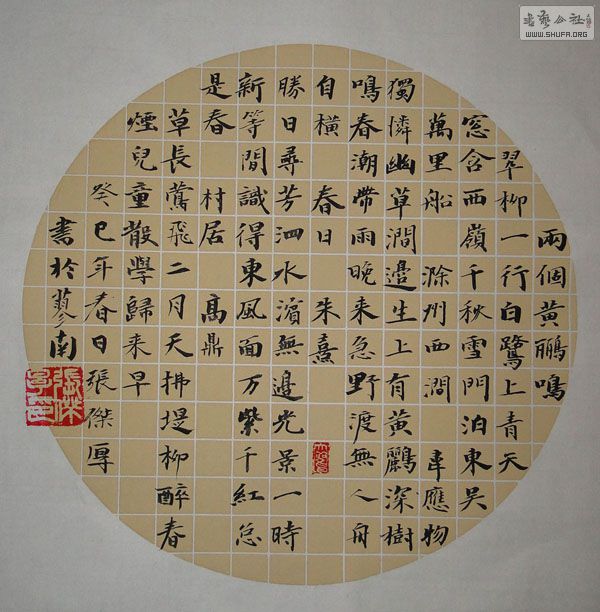 兩個黃鸝鳴
翠柳一行白鷺上青天
窓含西嶺千秋雪門泊東吳
萬里船 滁州西澗 韋應物
獨憐幽草澗邊生上有黃鸝深樹
鳴春潮帶雨晚来急野渡無人舟
自橫 春日 朱熹
勝日尋芳泗水濱無邊光景一時
新等閒識得東風面万紫千紅总
是春 村居 高鼎
草長鶯飛二月天拂堤柳醉春
煙兒童散學歸来早
癸巳年春日張傑厚
書於蓼南
書藝公社
WWW.SHUFA.ORG